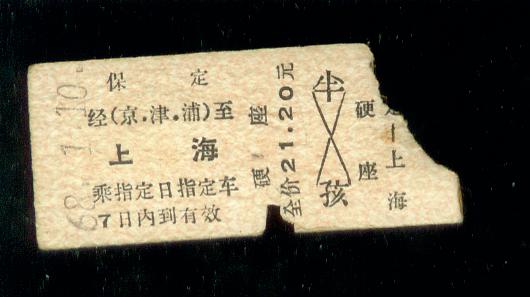 保定
经(京.津.浦)至
上海
乘指定日指定车
7日内到有效
硬座
全价21.20元
半孩
硬座
定—上海
68. 1. 10.